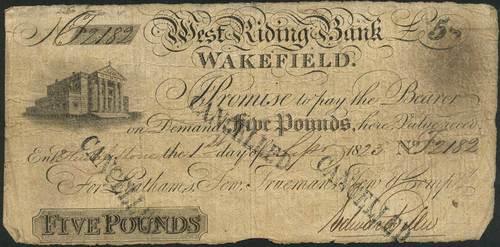 No F2182 West Riding Bank £5
WAKEFIELD.
I Promise to pay the Bearer
on Demand Five Pounds, here, Value recd.
Entd the 1st day of 1823 No F2182
For Leathams, Tew, Trueman, Tew & Compy
FIVE POUNDS
CANCELLED
CANCELLED
CANCELLED